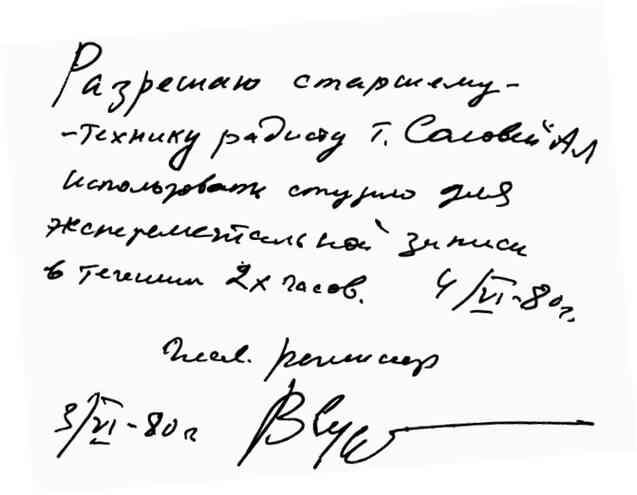 Разрешаю старшему-
-технику радисту т. Соловей Ал
использовать студию для
эксперементальной записи
в течении 2х часов. 4/VI-80г.
Глав. режиссер
3/VI-80г